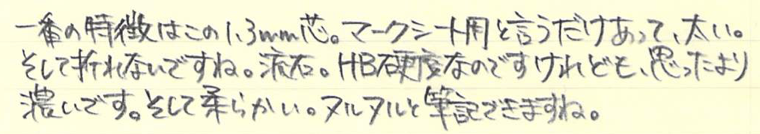 一番の特徴はこの1.3mm芯。マークシート用と言うだけあって、太い。
そして折れないですね。流石。HB硬度なのですけれども、思ったより
濃いです。そして柔らかい。ヌルヌルと筆記できますね。